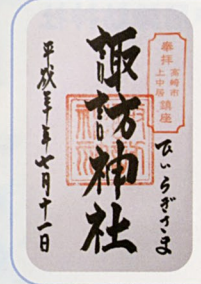 奉拝
高崎市
上中居
鎮座
諏訪神社
ひいらぎさま
平成三十年七月十一日